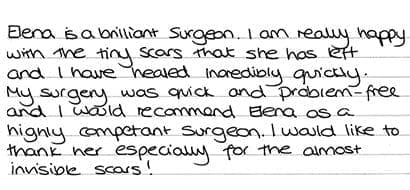 Elena is a brilliant Surgeon. I am really happy
with the tiny scars that she has left
and I have healed incredibly quickly.
My surgery was quick and problem-free
and I would recommend Elena as a
highly competant surgeon. I would like to
thank her especially for the almost
invisible scars!